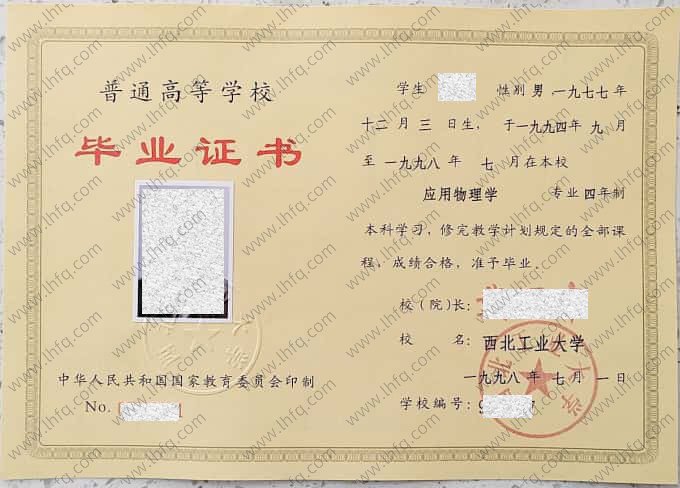 普通高等学校
毕业证书
中华人民共和国国家教育委员会印制
No.
学生 性别 男 一九七七年
十二月 三 日生，于一九九四年 九 月
至 一九九八 年 七 月在本校
应用物理学 专业 四 年制
本科学习，修完教学计划规定的全部课
程，成绩合格，准予毕业。
校（院）长：
校 名： 西北工业大学
一九九八 年 七 月 一 日
学校编号：
www.lhfq.com